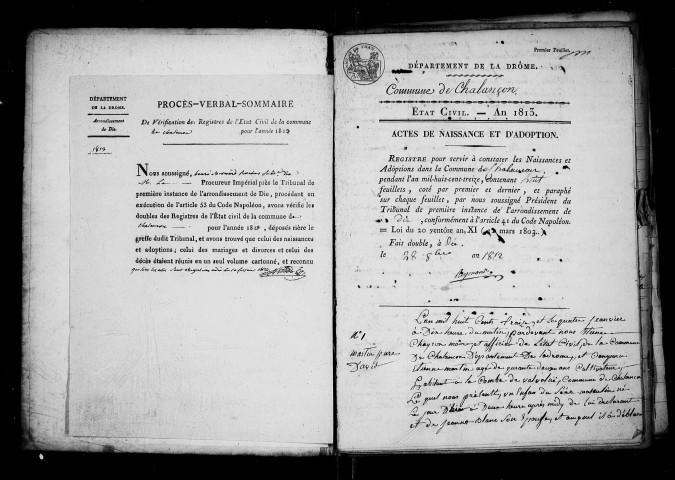 DÉPARTEMENT
DE LA DROME.
Arrondissement
de Die.
1812
PROCÈS-VERBAL-SOMMAIRE
De Vérification des Registres de l'Etat Civil de la commune
de chalancon pour l'année 1812
Nous soussigné,
Procureur Impérial près le Tribunal de
première instance de l'arrondissement de Die, procédant en
exécution de l'article 53 du Code Napoléon, avons vérifié les
doubles des Registres de l'État civil de la commune de
chalancon pour l'année 1812, déposés rière le
greffe dudit Tribunal, et avons trouvé que celui des naissances
et adoptions; celui des mariages et divorces et celui des
décès étaient réunis en un seul volume cartonné, et reconnu
Premier Feuillet.
DÉPARTEMENT DE LA DRÔME.
Commune de Chalançon
ETAT CIVIL. — AN 1813.
ACTES DE NAISSANCE ET D'ADOPTION.
REGISTRE pour servir à constater les Naissances et
Adoptions dans la Commune de Chalancon
pendant l'an mil-huit-cent-treize, contenant huit
feuillets, coté par premier et dernier, et paraphé
sur chaque feuillet, par nous soussigné Président du
Tribunal de première instance de l'arrondissement de
die, conformément à l'article 41 du Code Napoléon.
= Loi du 20 ventôse an XI ( mars 1803.)
Fait double, à die
le 28 8bre an 1812
N° 1
martin pierre
David
L'an mil huit Cent Treize et le quatre Janvier
à Dix heure du matin, pardevant nous Etienne
Chayron maire et officier de l'état Civil, de la Commune
De Chalancon Département De la drome, est Comparu
Etienne martin agé de quarante ans Cultivateur,
habitant à la Combe de Commune de Chalancon
Le quel nous présente, un Enfan du Sexe masculin né
Le jour D'hier à Deux heure après midy de lui déclarant
et de jeanne Blanc Son Epouse, et auquel il a déclaré